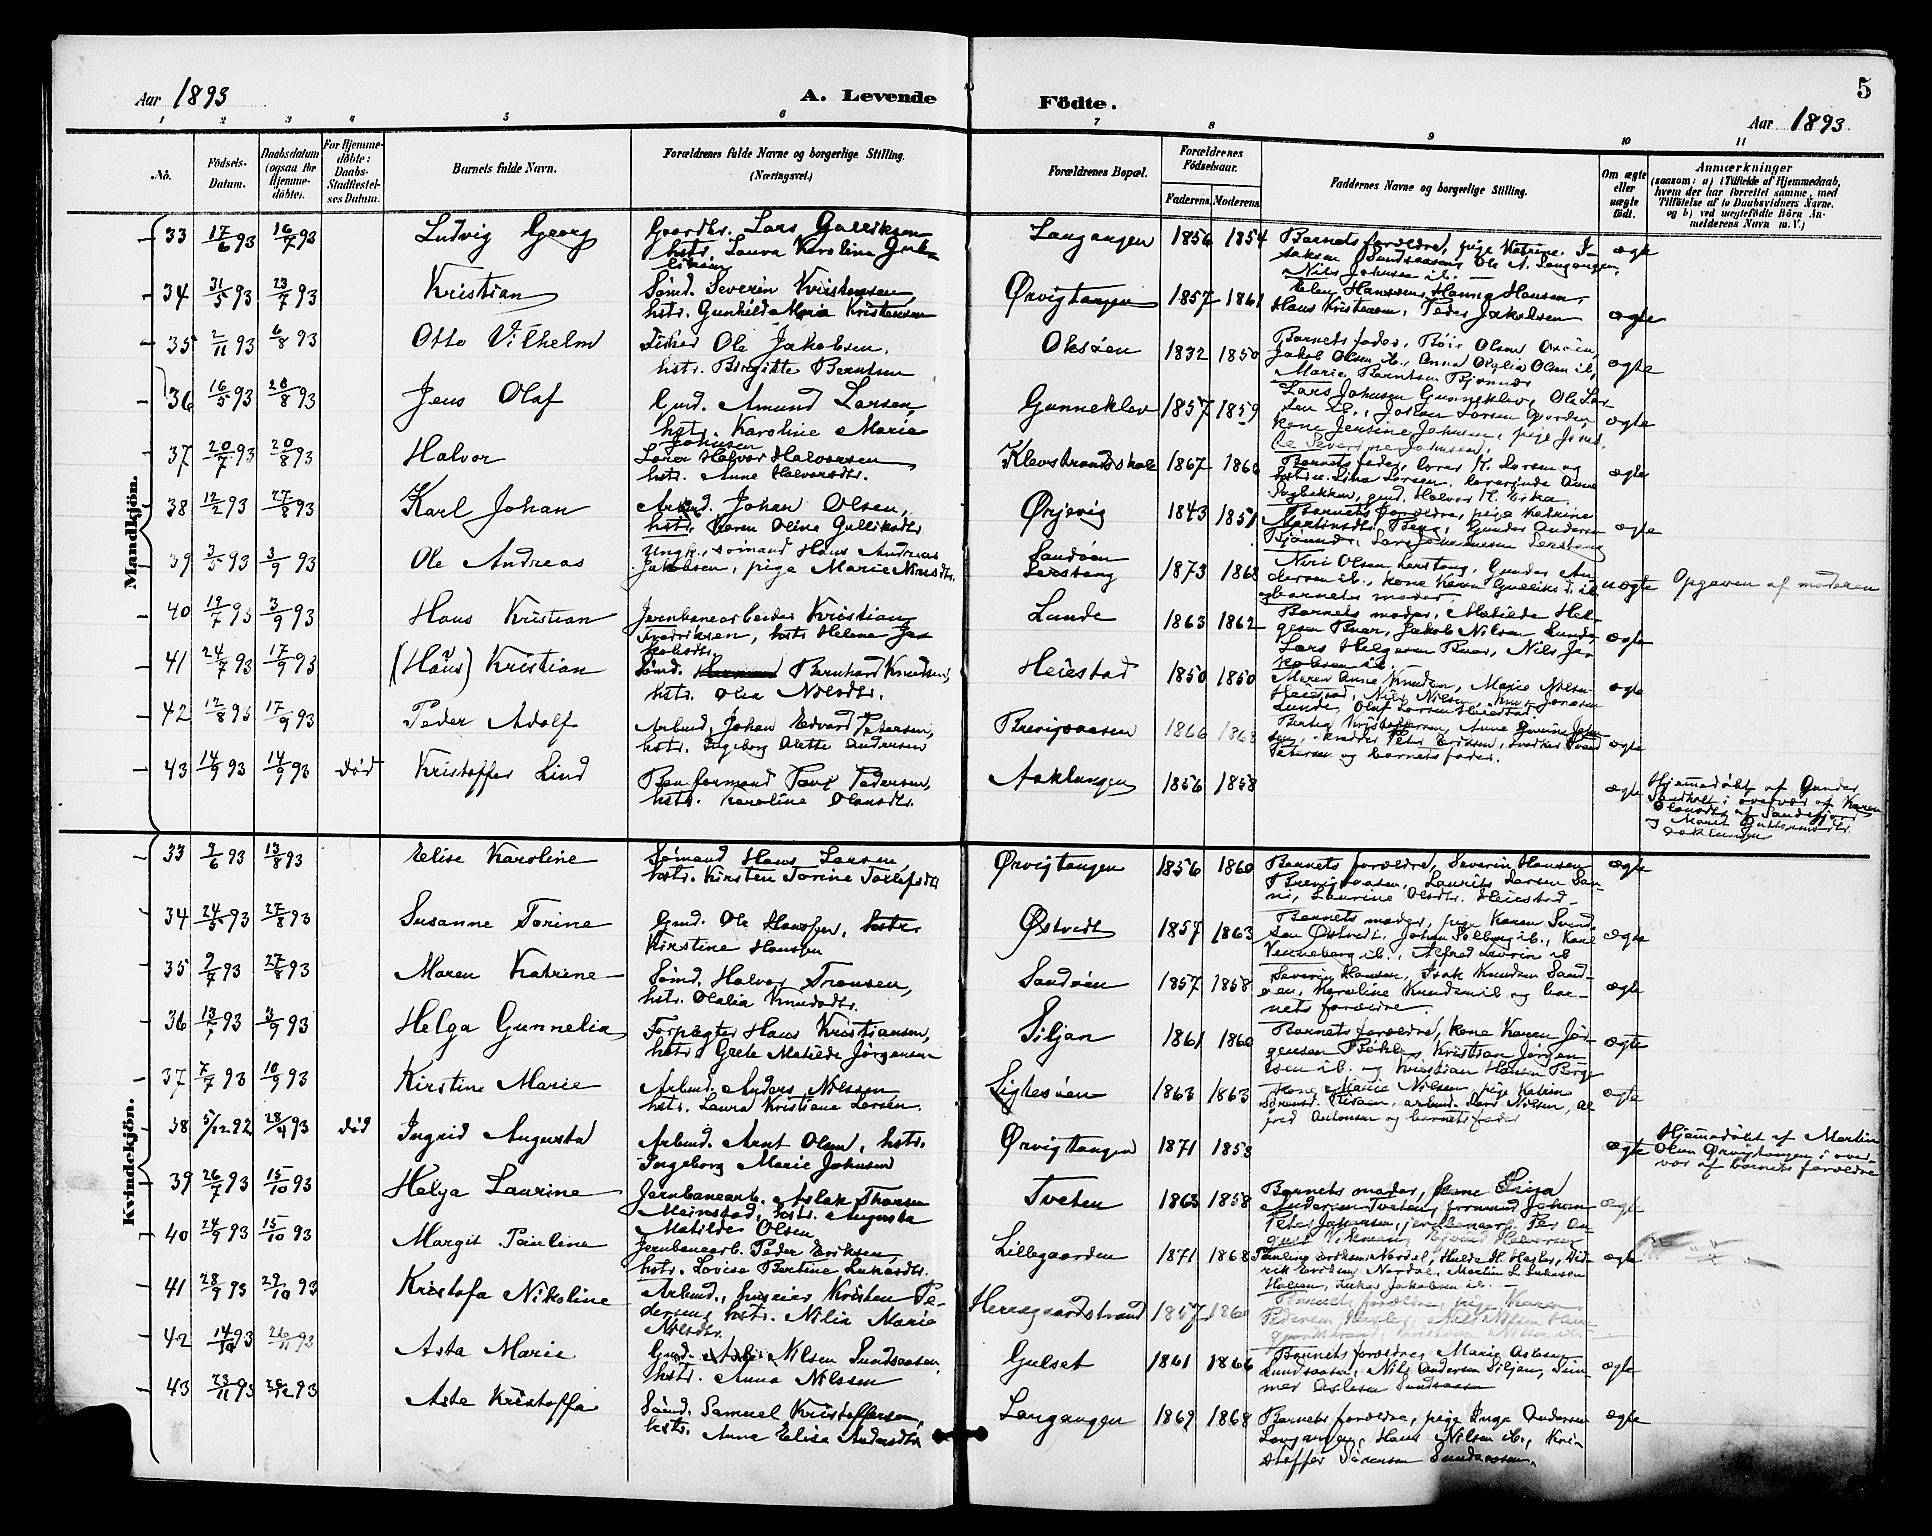 Aar 1893
A. Levende
Födte.
Aar 1893
5
1 2 3 4 5 6 7 8 9 10 11
No.
Födsels-Datum.
Daabsdatum (ogsaa for Hjemme-döbte).
For Hjemme-döbte: Daabs-Stadfæstel-ses Datum.
Barnets fulde Navn.
Forældrenes fulde Navne og borgerlige Stilling. (Næringsvei.)
Forældrenes Bopæl.
Forældrenes Födselsaar.
Faderens. Moderens.
Faddernes Navne og borgerlige Stilling.
Om ægte eller uægte födt.
Anmærkninger
(saasom: a) i Tilfælde af Hjemmedaab, hvem der har forrettet samme, med Tilföielse af to Daabsvidners Navne, og b) ved uægtefödte Börn An-melderens Navn m. V.)
Mandkjön.
33 17/6 93 16/7 93 Ludvig Georg
Gaardbr. Lars Gulliksen
hstr. Laura Karoline
Langangen 1856 1854
Barnets forældre, pige Katrine
Nils Johnsen ib.
ægte
34 31/5 93 23/7 93 Kristian
Sömd. Severin Kristensen,
hstr. Gunhild Maria Kristensen
Ørvigtangen 1857 1861
Elen Hanssen, Hanna Hansen,
Hans Kristensen, Peder Jakobsen
ægte
35 2/11 93 6/8 93 Otto Vilhelm
Fisker Ole Jakobsen,
hstr. Birgitte Berntsen
Oksöen 1832 1850
Barnets fader,
Jakob Olsen ib., Anna Olalia Olsen ib.,
Marie Berntsen Bjönnes
ægte
36 16/5 93 20/8 93 Jens Olaf
Gmd. Amund Larsen,
hstr. Karoline Marie
Johnsen
Gunneklev 1857 1859
Lars Johnsen Gunneklev, Ole Lar-
sen ib., Johan Larsen
kone Jensine Johnsen, pige
Severine Johnsen,
ægte
37 20/7 93 20/8 93 Halvor
Lærer Halvor Halvorsen
hstr. Anne Halvorsdtr.
Klevstrandskole 1867
Barnets fader, lærer
Lina Larsen, lærerinde Anna
Sagbakken, gmd. Halvor
ægte
38 12/2 93 27/8 93 Karl Johan
Arbmd. Johan Olsen,
hstr. Karen Oline Gulliksdtr
Ørjevig 1843 1851
Barnets forældre, pige Katrine
Martinsdtr. Berg, Gunder Anderse
Bjönnes, Lars Johannesen Lerstang
ægte
39 3/5 93 3/9 93 Ole Andreas
Ungk., sömand Hans Andreas
Jakobsen, pige Marie
Sandöen
Lerstang
1873 1868
Olsen Lerstang, Gunder An-
dersen ib., kone Karen
og barnets moder.
uægte Opgaven af moderen
40 19/7 93 3/9 93 Hans Kristian
Jernbanearbeider Kristian
Fredriksen, hstr. Helene Ja-
kobsdtr.
Lunde 1863 1862
Barnets moder, Matilde Hel-
gesen Buer, Jakob Nilsen Lunde,
Lars Helgesen Buer, Nils Ja-
kobsen ib.
ægte
41 24/7 93 17/9 93 (Hans) Kristian
Sömd. Bernhard Knudsen,
hstr. Olea Nilsdtr.
Heiestad 1850 1850
Maren Anne Knudsen, Marie Nilsen
Heiestad, Nils Nilsen, Knut Jonasen
Lunde, Olaf Larsen Heiestad.
ægte
42 12/8 93 17/9 93 Peder Adolf
Arbmd. Johan Edvard Petersen,
hstr. Ingeborg Alette Andersen
Brevigsaasen 1866 1868
Bertea Kristoffersen, Anne
skrædder Peter Eriksen,
Petersen og barnets fader.
ægte
43 14/9 93 14/9 93 död Kristoffer Lind
Banformand Pedersen,
hstr. Karoline Olausdtr.
Aaklungen 1856 1858
ægte
Hjemmedöbt af Gunder
Sandholt i overvær af Karen
Olausdtr. af Sandefjord
og Maret
Aaklungen
Kvindekjön.
33 9/6 93 13/8 93 Elise Karoline
Sömand Hans Larsen,
hstr. Kirsten Torine Tollefsdtr
Ørvigtangen 1856 1860
Barnets forældre, Severin Hansen
Brevigsaasen, Laurits Larsen
Laurine Olsdtr. Heiestad
ægte
34 24/5 93 27/8 93 Susanne Torine
Gmd. Ole Hansen, hstr.
Kirstine Hansen
Østvedt 1857 1863
Barnets moder, pige Karen
Østvedt, Johan Solberg ib.,
Venneberg ib., Alfred ib
ægte
35 9/7 93 27/8 93 Maren Katrine
Sömd. Halvor Tronsen,
hstr. Olalia Knudsdtr.
Sandöen 1857 1858
Severin Hansen, Isak Knudsen Sand-
öen, Karoline Knudsen ib og bar-
nets forældre.
ægte
36 13/7 93 3/9 93 Helga Gunnelia
Forpagter Hans Kristiansen,
hstr. Grete Matilde Jörgensen
Siljan 1861 1860
Barnets forældre, kone Karen Jör-
gensen Bökle, Kristian Jörgen-
sen ib. og Kristian Hansen Berg
ægte
37 7/7 93 10/9 93 Kirstine Marie
Arbmd. Anders Nilssen
hstr. Laura Kristiane Larsen.
Sigtesöen 1863 1863
Kone Marie Nilsen, pige Katrine
arbmd. Nilsen, Al-
fred Antonsen og barnets fader
ægte
38 5/12 92 28/4 93 död Ingrid Augusta
Arbmd. Arnt Olsen, hstr.
Ingeborg Marie Johnsen
Ørvigtangen 1871 1858
ægte
Hjemmedöbt af Martin
Olsen Ørvigtangen i over-
vær af barnets forældre
39 26/7 93 15/10 93 Helga Laurine
Jernbanearb. Aslak Thorsen
Meinstad, hstr. Augusta
Matilde Olsen
Tveten 1863 1858
Barnets moder,
Andersen Tveten, formand Johan
Peter Johansen, jernbanearb. Per Au-
gust Halvorsen
ægte
40 24/9 93 15/10 93 Margit Pauline
Jernbanearb. Peder Eriksen,
hstr. Lovise Bertine Lukasdtr.
Lillegaarden 1871 1868
Pauline Eriksen Nordal,
Eriksen Nordal, Martin L.
Lukas Jakobsen ib.
ægte
41 28/9 93 29/10 93 Kristofa Nikoline
Arbmd., huseier Kristen Pe-
dersen, hstr. Nilia Marie
Nilsdtr.
Herregaardstrand 1857 1860
Barnets forældre, pige Karen
Pedersen Nils Nilsen Herre-
gaardstrand, Kristian Nilsen ib.
42 14/10 93 26/11 93 Asta Marie
Gmd. Nilsen Sundsaasen,
hstr. Anna Nilssen
Gulset 1861 1866
Barnets forældre, Marie Aslesen
Sundsaasen, Nils Andersen Siljan,
Aslesen Sundsaasen
ægte
43 23/11 93 26/12 93 Asta Kristoffa
Sömd. Samuel Kristoffersen,
hstr. Anne Elise Andersdtr
Langangen 1869 1868
Barnets forældre, pige Inga Andersen
Langangen, Hans Nilsen ib., Kri-
stoffer Sörensen Sundsaasen.
ægte